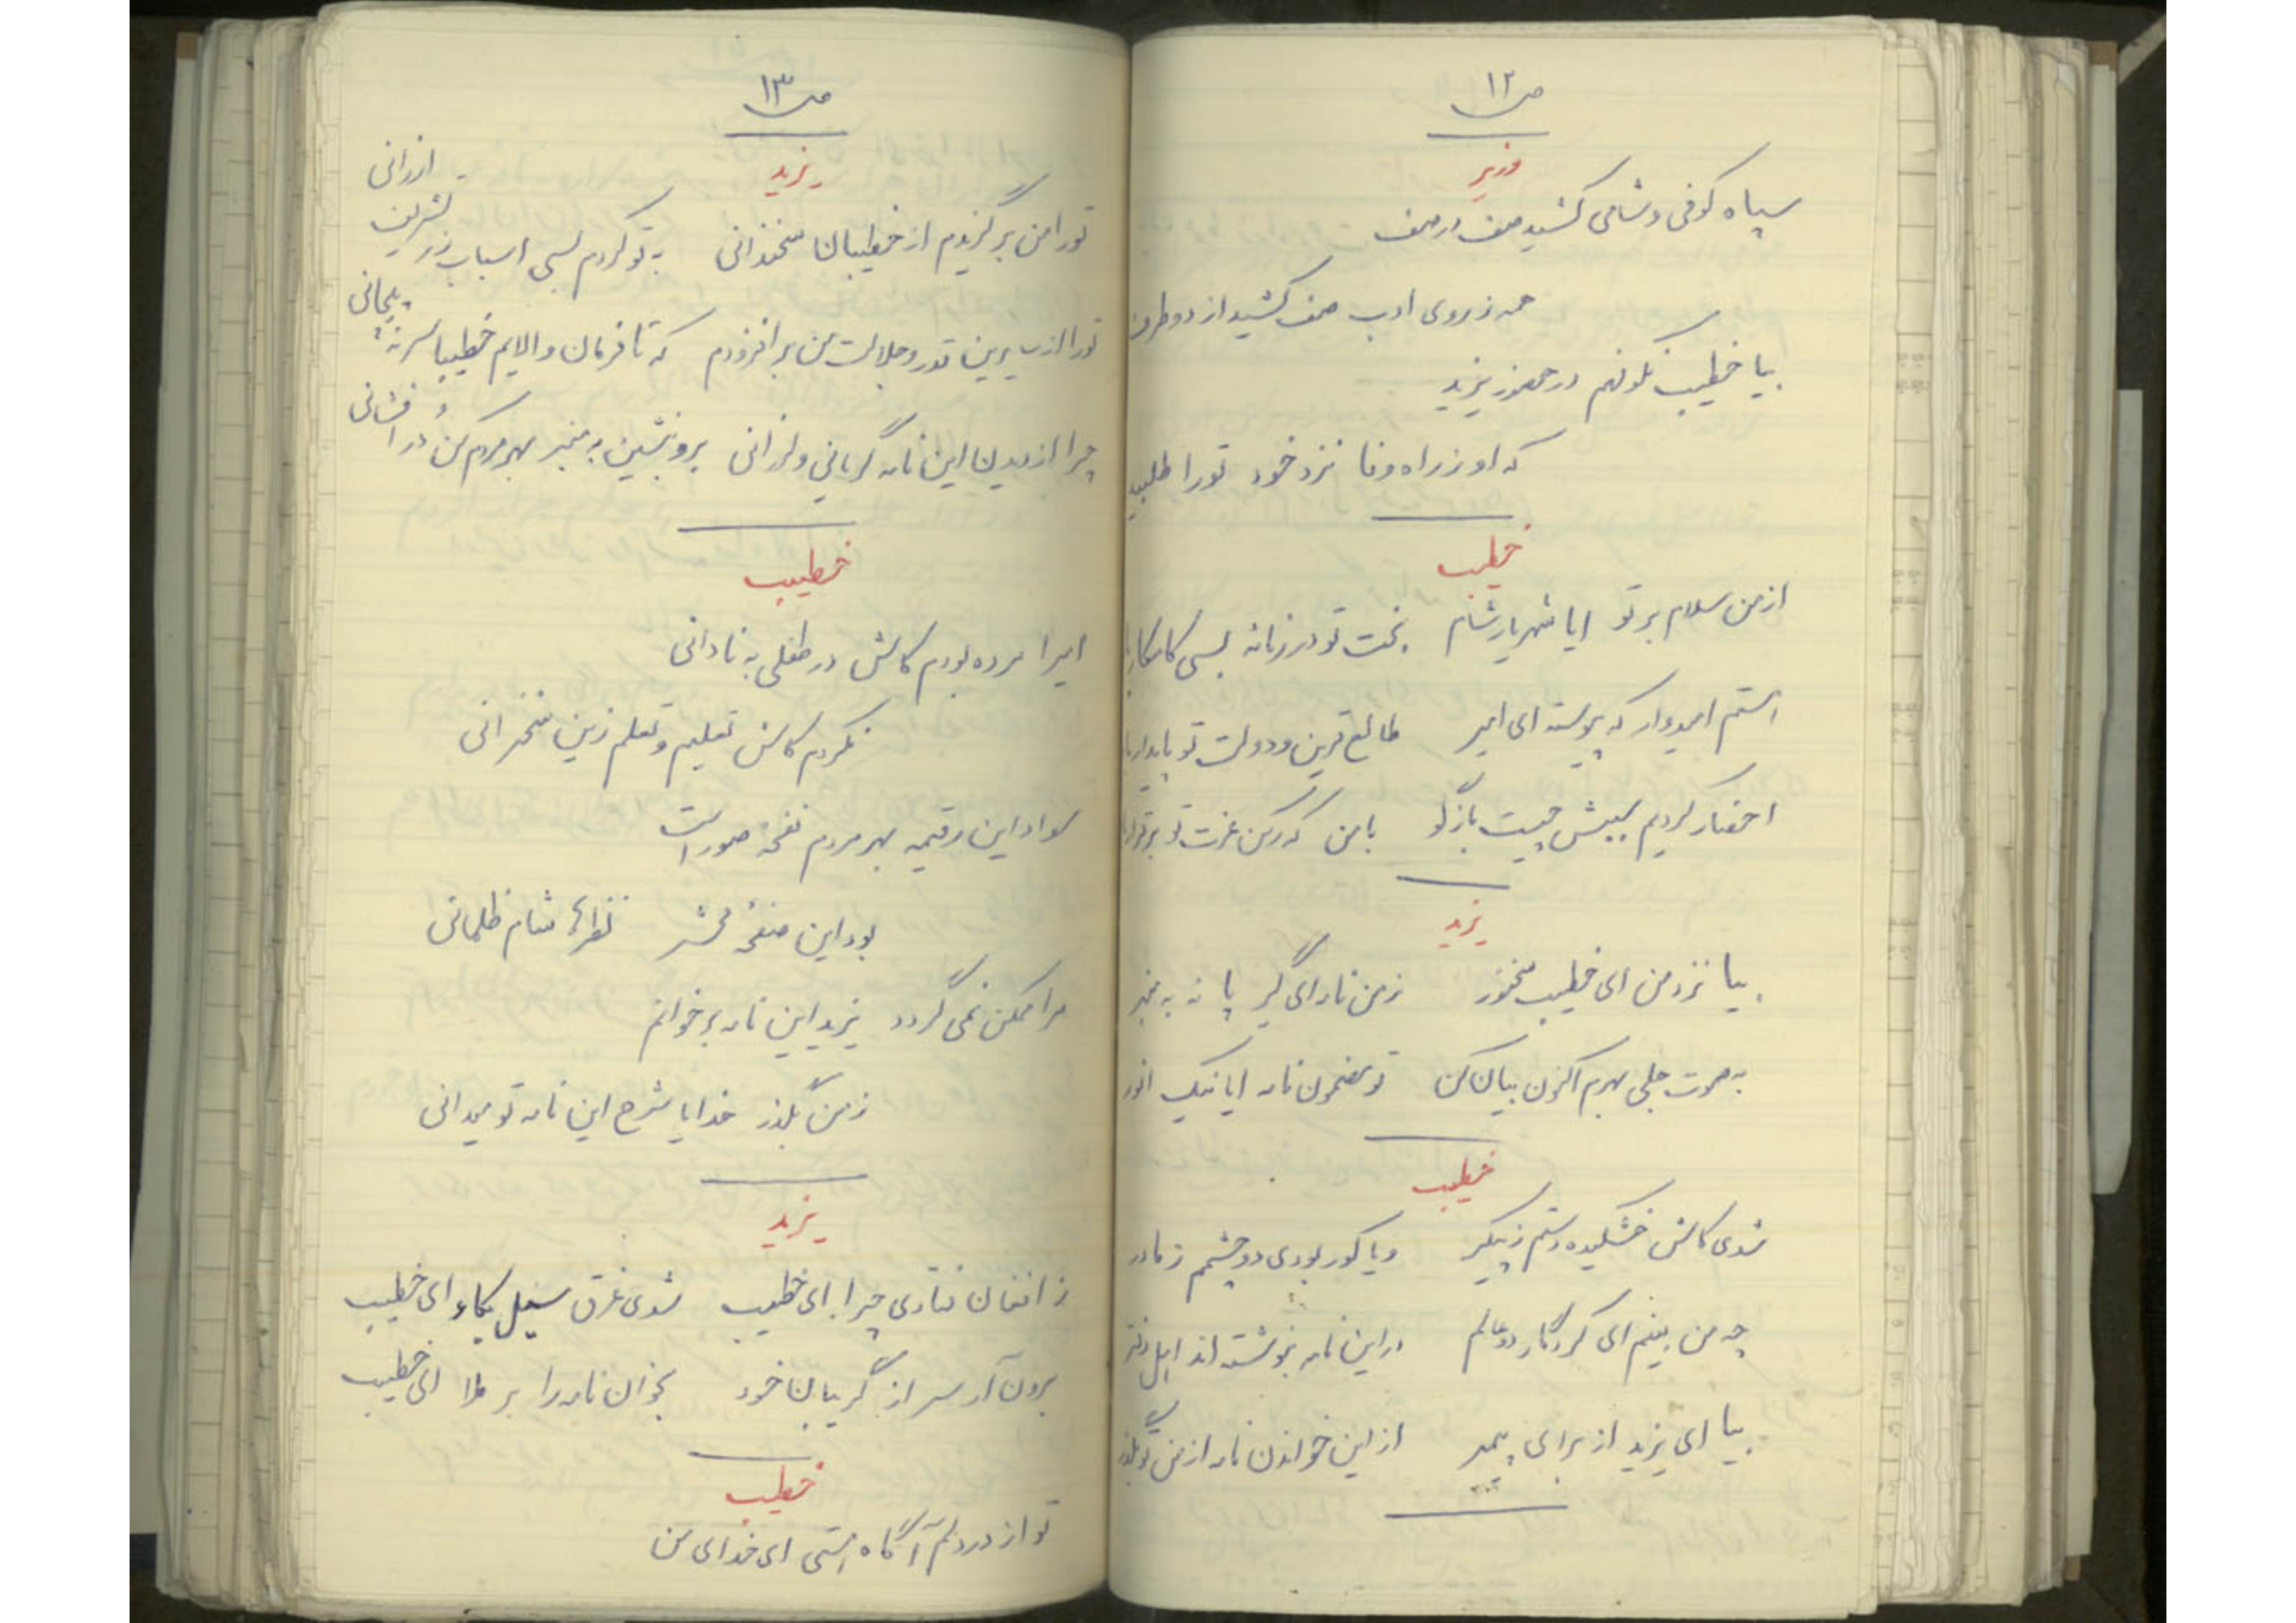 ص ۱۲
وزیر
سپاه کوفی و شامی کشید صف در صف
همه ز روی ادب صف کشید از دو طرف
بیا خطیب نکو فهم در حضور یزید
که او ز راه وفا نزد خود تو را طلبید
خطیب
از من سلام بر تو ایا شهریار شام بخت تو در زمانه بسی کامکار
استم امیدوار که پیوسته ای امیر طالع قرین و دولت تو پایدار
احضار کردیم سببش چیست بازگو با من که رکن عزت تو برقرار
یزید
بیا نزد من ای خطیب سخنور ز من نامه ای گیر پا نه به منبر
به صوت جلی بهرم اکنون بیان کن تو مضمون نامه ایا نیک انور
خطیب
شدی کاش خشکیده دستم ز پیکر و یا کور بودی دو چشمم ز مادر
چه من بینم ای کردگار دو عالم در این نامه بنوشته اند اهل دفتر
بیا ای یزید از برای پیمبر از این خواندن نامه از من تو بگذر
ص ۱۳
یزید
تو را من برگزیدم از خطیبان سخندانی به تو کردم بسی اسباب زر تشریف ارزانی
تو را از سایرین قدر و جلالت من برافزودم که تا فرمان والایم خطیبا سر نه پیچانی
چرا از دیدن این نامه گریانی و لرزانی برو بنشین به منبر بهر مردم کن دُر افشانی
خطیب
امیرا مرده بودم کاش در طفلی به نادانی
نکردم کاش تعلیم و تعلم زین سخنرانی
سواد این رقیمه بهر مردم نفخهٔ صور است
بود این صفحهٔ محشر شام ظلمانی
مرا ممکن نمی گردد یزید این نامه برخوانم
ز من بگذر خدایا شرح این نامه تو میدانی
یزید
ز افغان فتادی چرا ای خطیب شدی غرق سیل بکاء ای خطیب
برون آر سر از گریبان خود بخوان نامه را بر ملا ای خطیب
خطیب
تو از درد دلم آگاه استی ای خدای من